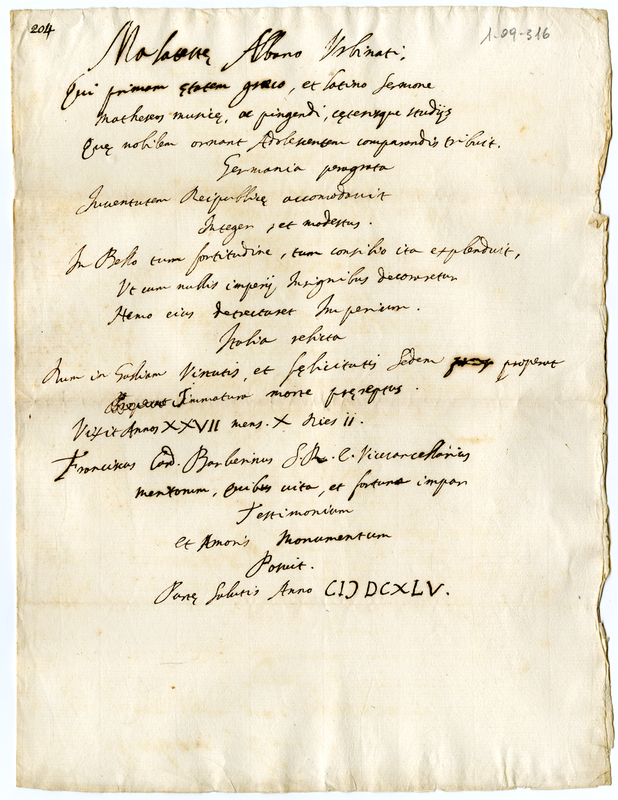 204
1-09-316
Malatestę Albano Vrbinati,
Qui primam ętatem gręco, et latino sermone
matheseos musicę, ac pingendi, cęterisque studijs
Quę nobilem ornant Adolescentem comparandis tribuit.
Germania peragrata
Juuentutem Reipublicę accomodauit
Integer, et modestus.
In Bello tum fortitudine, tum consilio ita explenduit,
Vt cum nullis imperij Insignibus decoraretur
Nemo eius detrectaret Imperium.
Italia relicta
Dum in Galliam Virtutis, et fęlicitatis Sedem properat
Immatura morte pręreptus.
Vixit Annos XXVII mens. X Dies ii.
Franciscus Card. Barberinus S.R.E. Vicecancellarius
meritorum, Quibus uita, et fortuna impar
Testimonium
et Amoris Monumentum
Posuit.
Partę Salutis Anno CIↃ DCXLV.